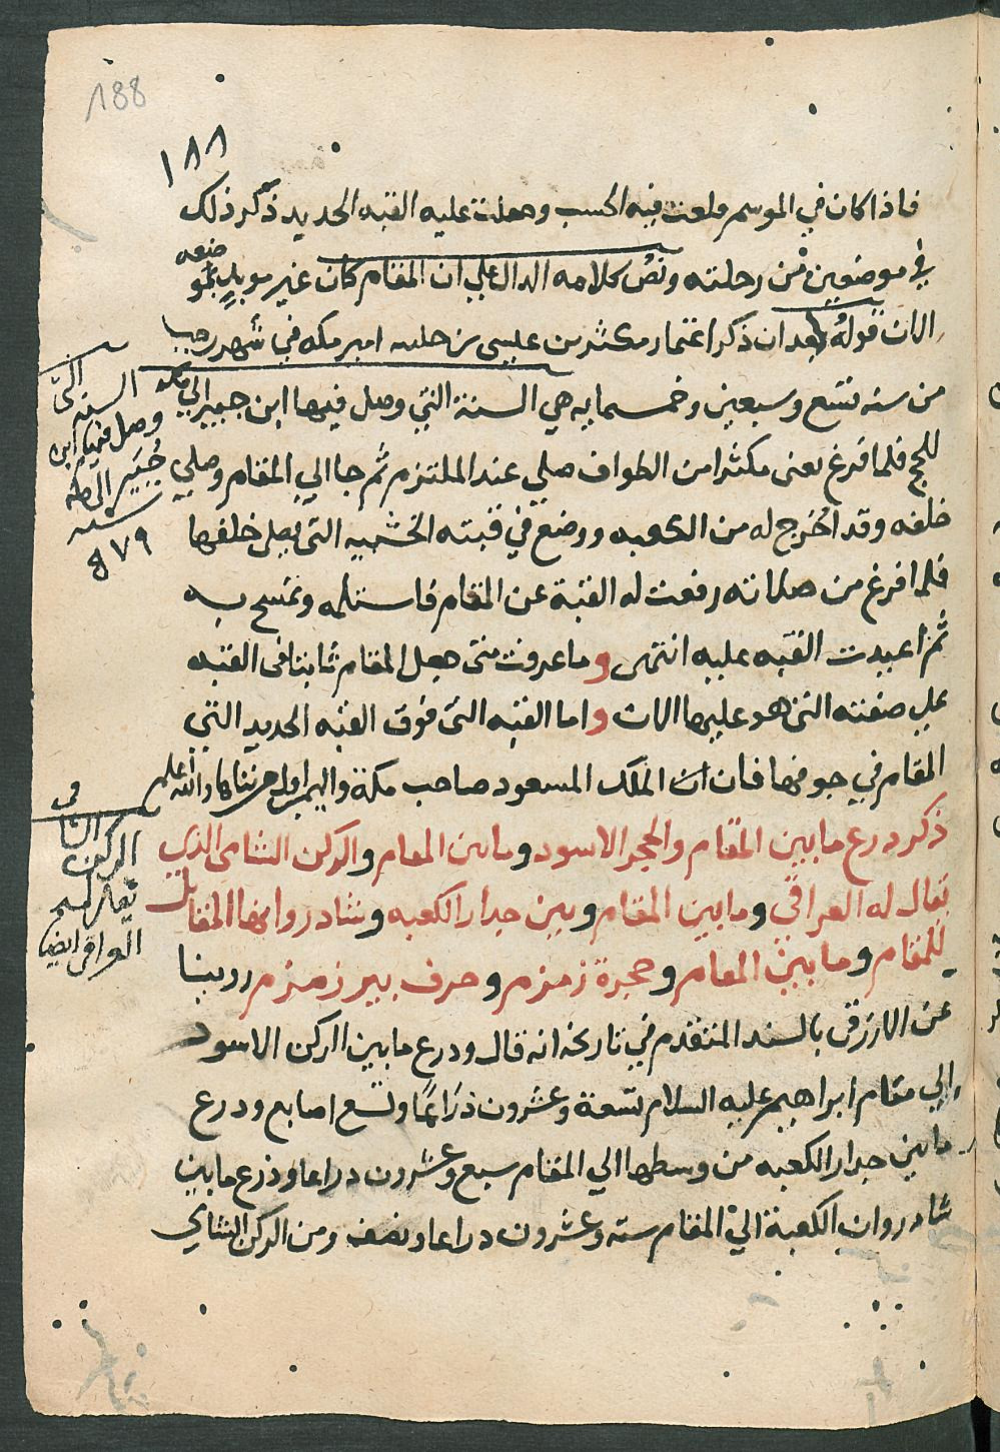 188
١٨٨
فاذا كان في الموسم قلعت قبه الخشب وجعلت عليه القبه الحديد ذكر ذلك
في موضعين من رحلته ونص كلامه الدال علي ان المقام كان غير موبد بموضعه
الان قوله بعد ان ذكر اعتمار مكثر بن عيسى امير مكه في شهر رجب
من سنه تسع وسبعين وخمسمايه هي السنة التي وصل فيها ابن جبير الي مكه
للحج فلما فرغ يعنى مكثرا من الطواف صلي عند الملتزم ثم جا الي المقام وصلي
خلفه وقد اخرج له من الكعبه ووضع في قبته الخشبيه التى يصلى خلفها
فلما فرغ من صلاته رفعت له القبة عن المقام فاستلمه وتمسح به
ثم اعيدت القبه عليه انتهى وما عرفت متى جعل المقام ثابتا فى القبه
على صفته التى هو عليها الان واما القبه التى فوق القبه الحديد التي
المقام في جوفها فان الملك المسعود صاحب مكة واليمن اول من بناها والله اعلم
ذكر درع ما بين المقام والحجر الاسود وما بين المقام والركن الشامى الذي
يقال له العراقى وما بين المقام وبين جدار الكعبه وشادروانها المقابل
للمقام وما بين المقام وحجرة زمزم وحرف بير زمزم روينا
عن الازرقى بالسند المتقدم في تاريخه انه قال ودرع ما بين الركن الاسود
الي مقام ابراهيم عليه السلام تسعة وعشرون ذراعا وتسع اصابع ودرع
ما بين جدار الكعبه من وسطها الي المقام سبع وعشرون دراعا وذرع ما بين
شادروان الكعبة الي المقام سته وعشرون دراعا ونصف ومن الركن الشاي
السنه التى
وصل فيها ابن
جُبَير الى مكة
سنه
٥٧٩
فى
الركن الشامى
يقال له
العراقى ايضا